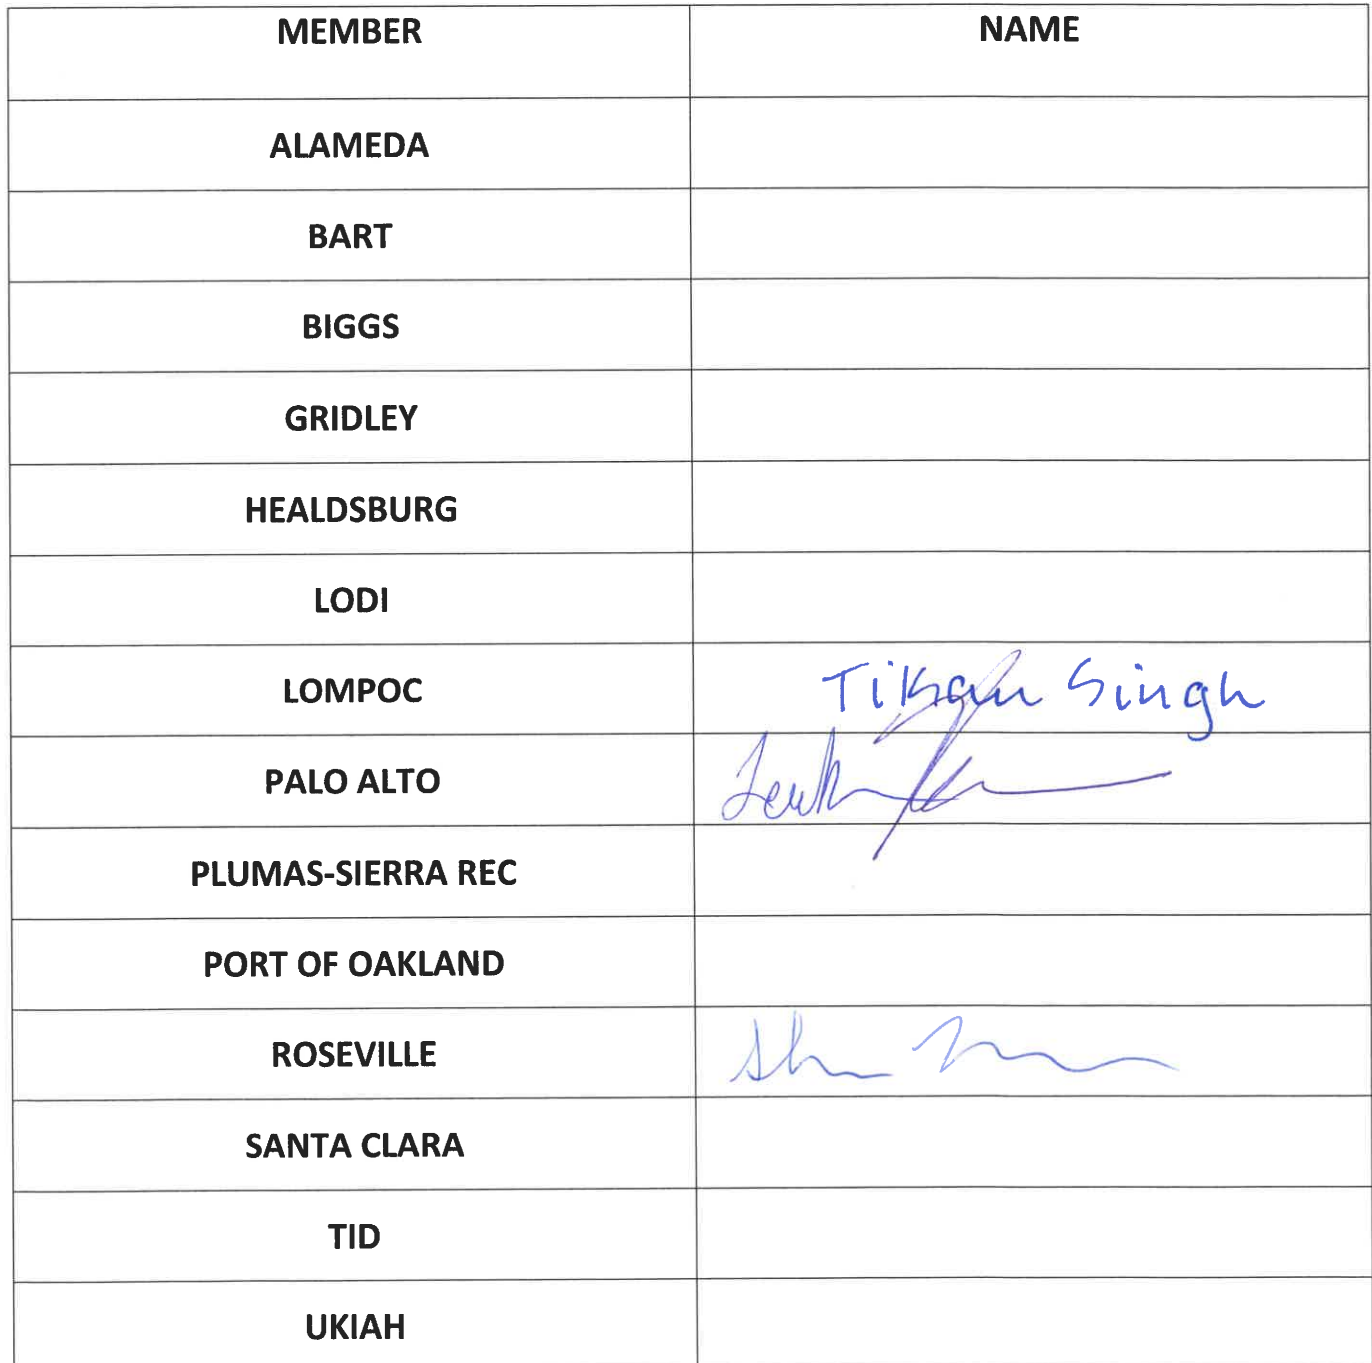 MEMBER NAME
ALAMEDA
BART
BIGGS
GRIDLEY
HEALDSBURG
LODI
LOMPOC Tikan Singh
PALO ALTO
PLUMAS-SIERRA REC
PORT OF OAKLAND
ROSEVILLE
SANTA CLARA
TID
UKIAH